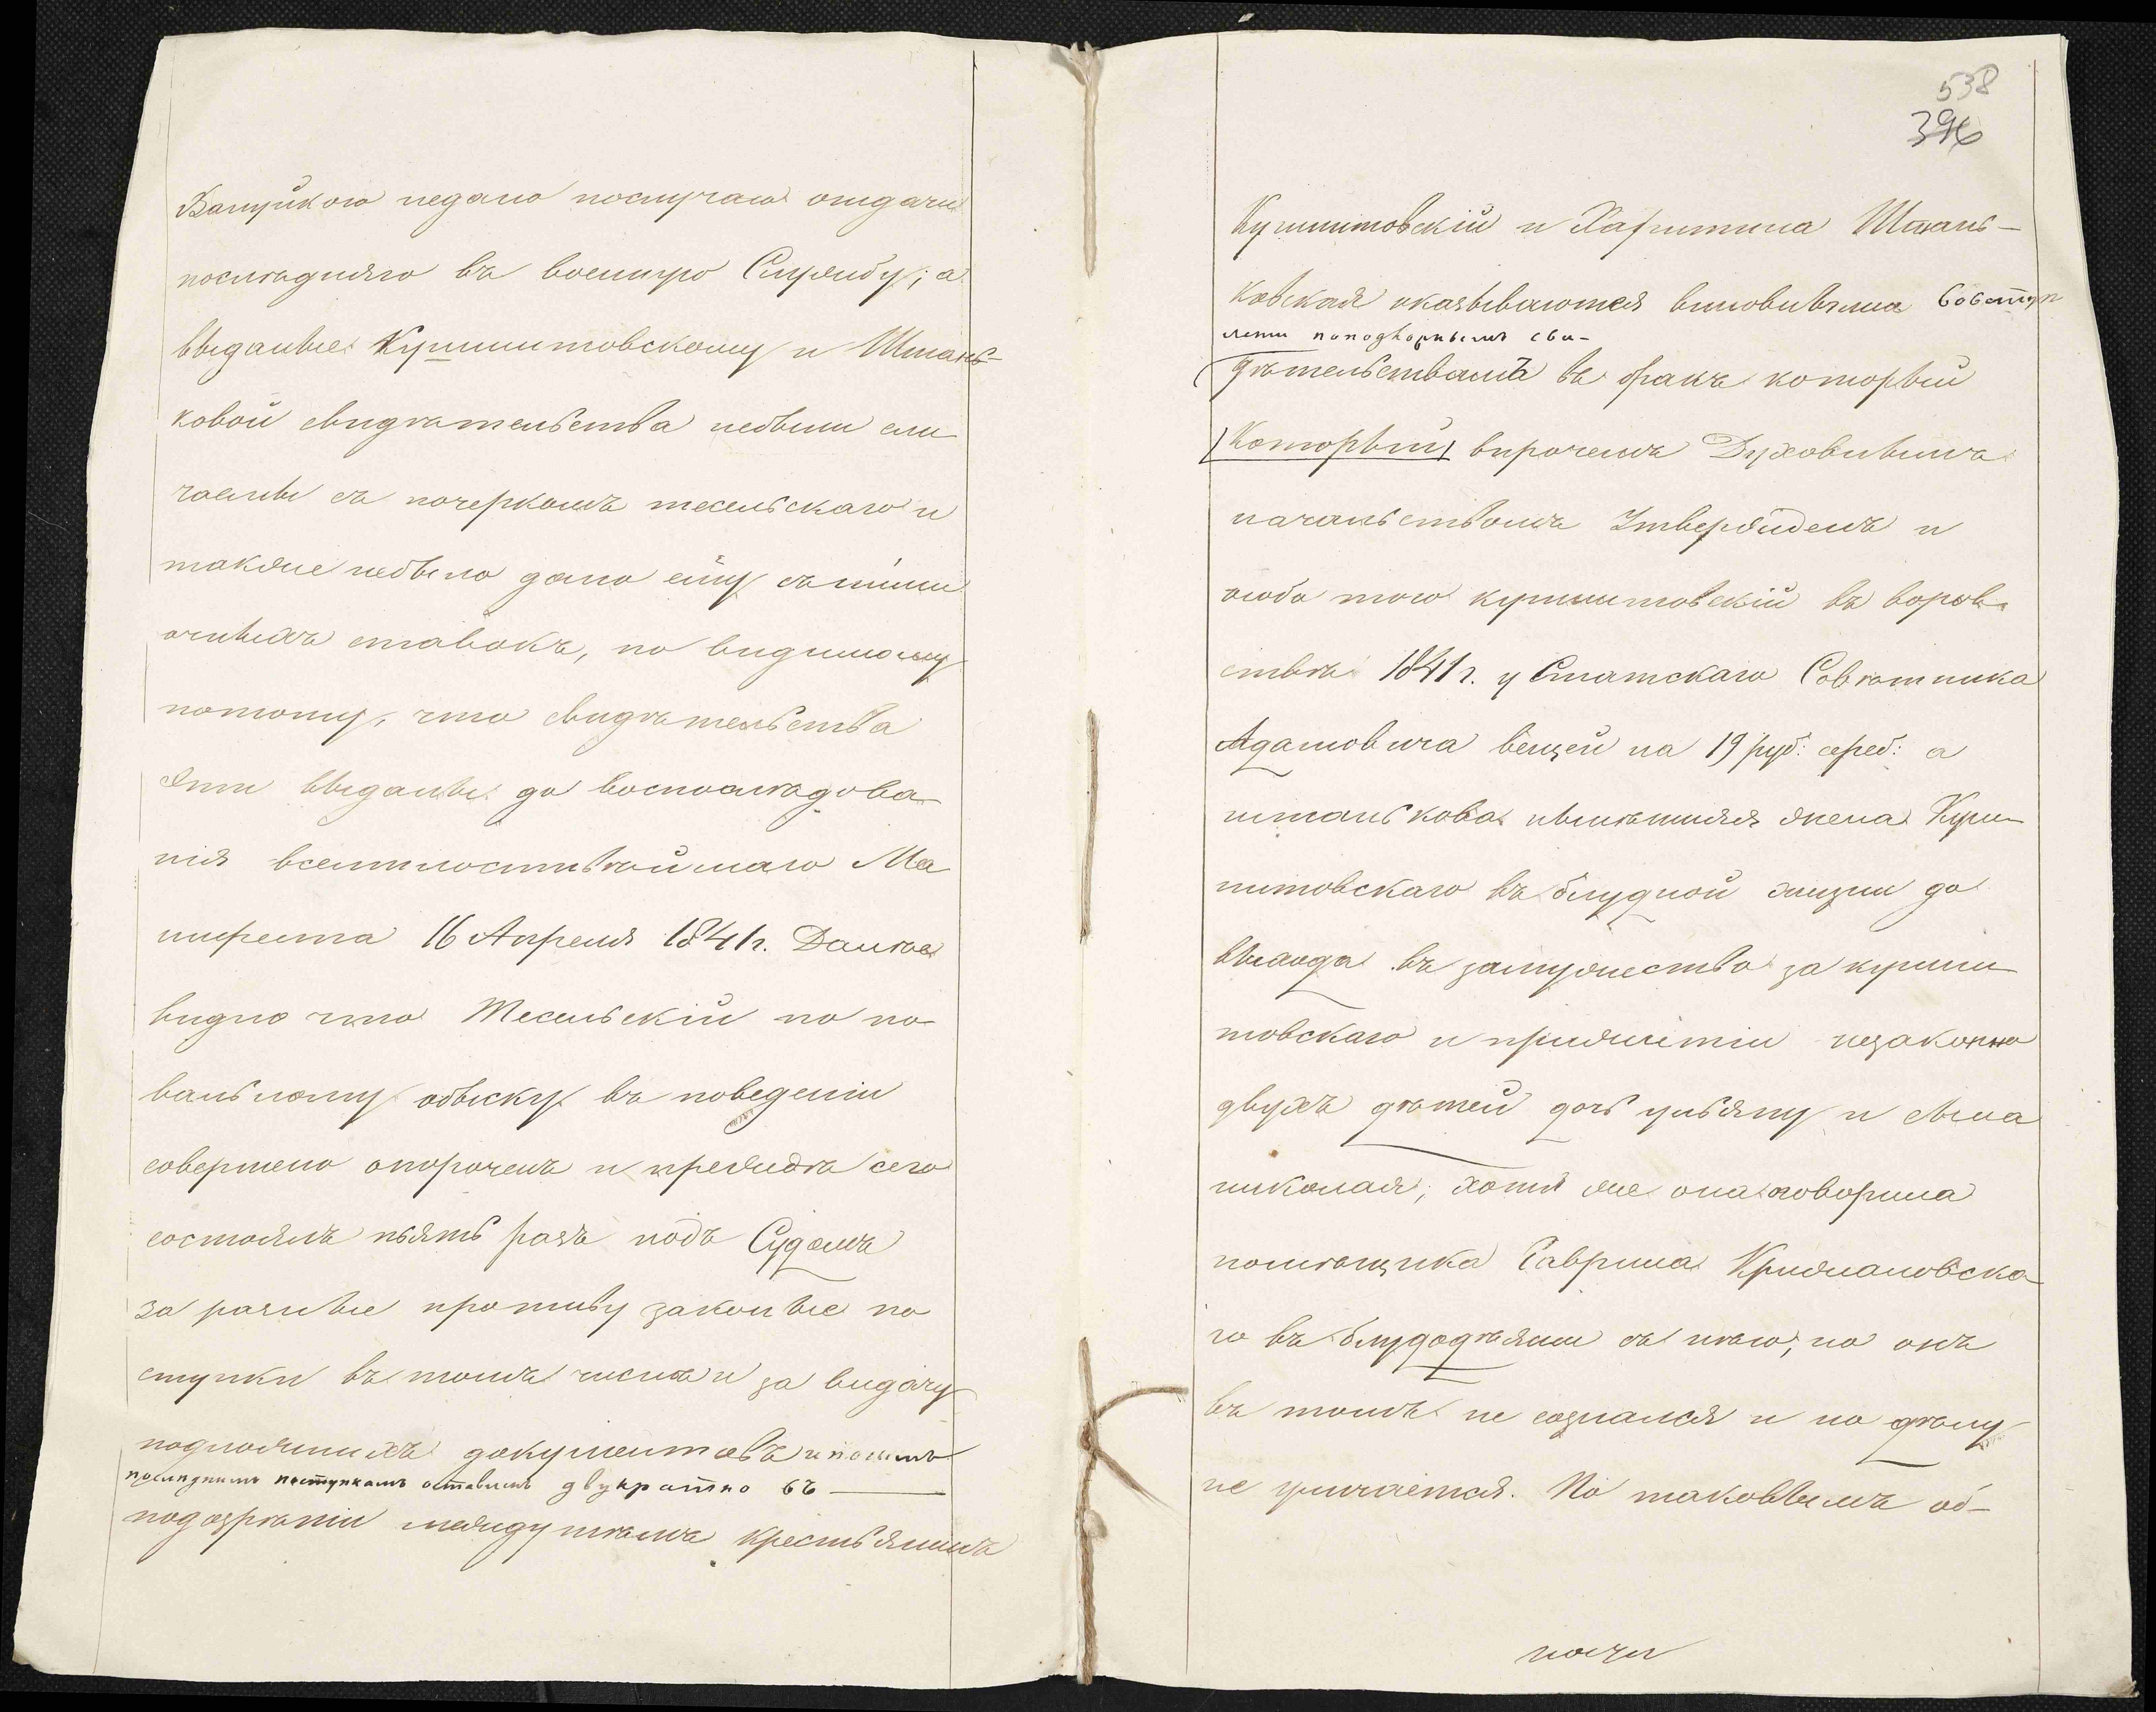 Валуйкого недано послучаю отдачи
последняго въ военную Службу; а
выданные Купшитовскому и Штань-
ковой свидѣтельства небыли сли
чаемы съ почеркомъ тесельскаго и
также небыло дано ему съ ними
очныхъ ставокъ, по видимому
потому, что свидѣтельства
эти выданы до воспослѣдова
нія всемилостивѣйшаго Ма
нифеста 16 Апреля 1841 г. Далѣе
видно что Тесельскій по по
вальному обыску въ поведеніи
совершено опороченъ и прежде сего
состоялъ пьять разъ подъ Судомъ
за разные противу законные по
ступки въ томъ числѣ и за видачу
подложныхъ документовъ и по симъ
последнимъ поступкамъ оставленъ двукратно въ
подозрѣніи между тѣмъ крестьянинъ
538
396
Купшитовскій и Харитина Штань-
ковская оказываются виновными вовступ
лении поподложнымъ сви-
дѣтельствамъ въ бракъ который
(Который) впрочемъ Духовнымъ
начальствомъ Утвержденъ и
особо того купшитовскій въ воров
ствѣ 1841 г. у Статскаго Совѣтника
Адамовича вещей на 19 руб: сереб: а
штанькова нынѣшняя жена Купши
питовскаго въ блудной жизни до
выхода въ замужество за купши
товскаго и прижитіи незаконно
двухъ дѣтей дочь ульяну и сына
николая; хотя же она говорила
помѣщика Гаврила Крижановска
го въ блудодѣянии съ нѣю; но онъ
въ томъ не сознался и по дѣлу
не уличается. По таковымъ об-